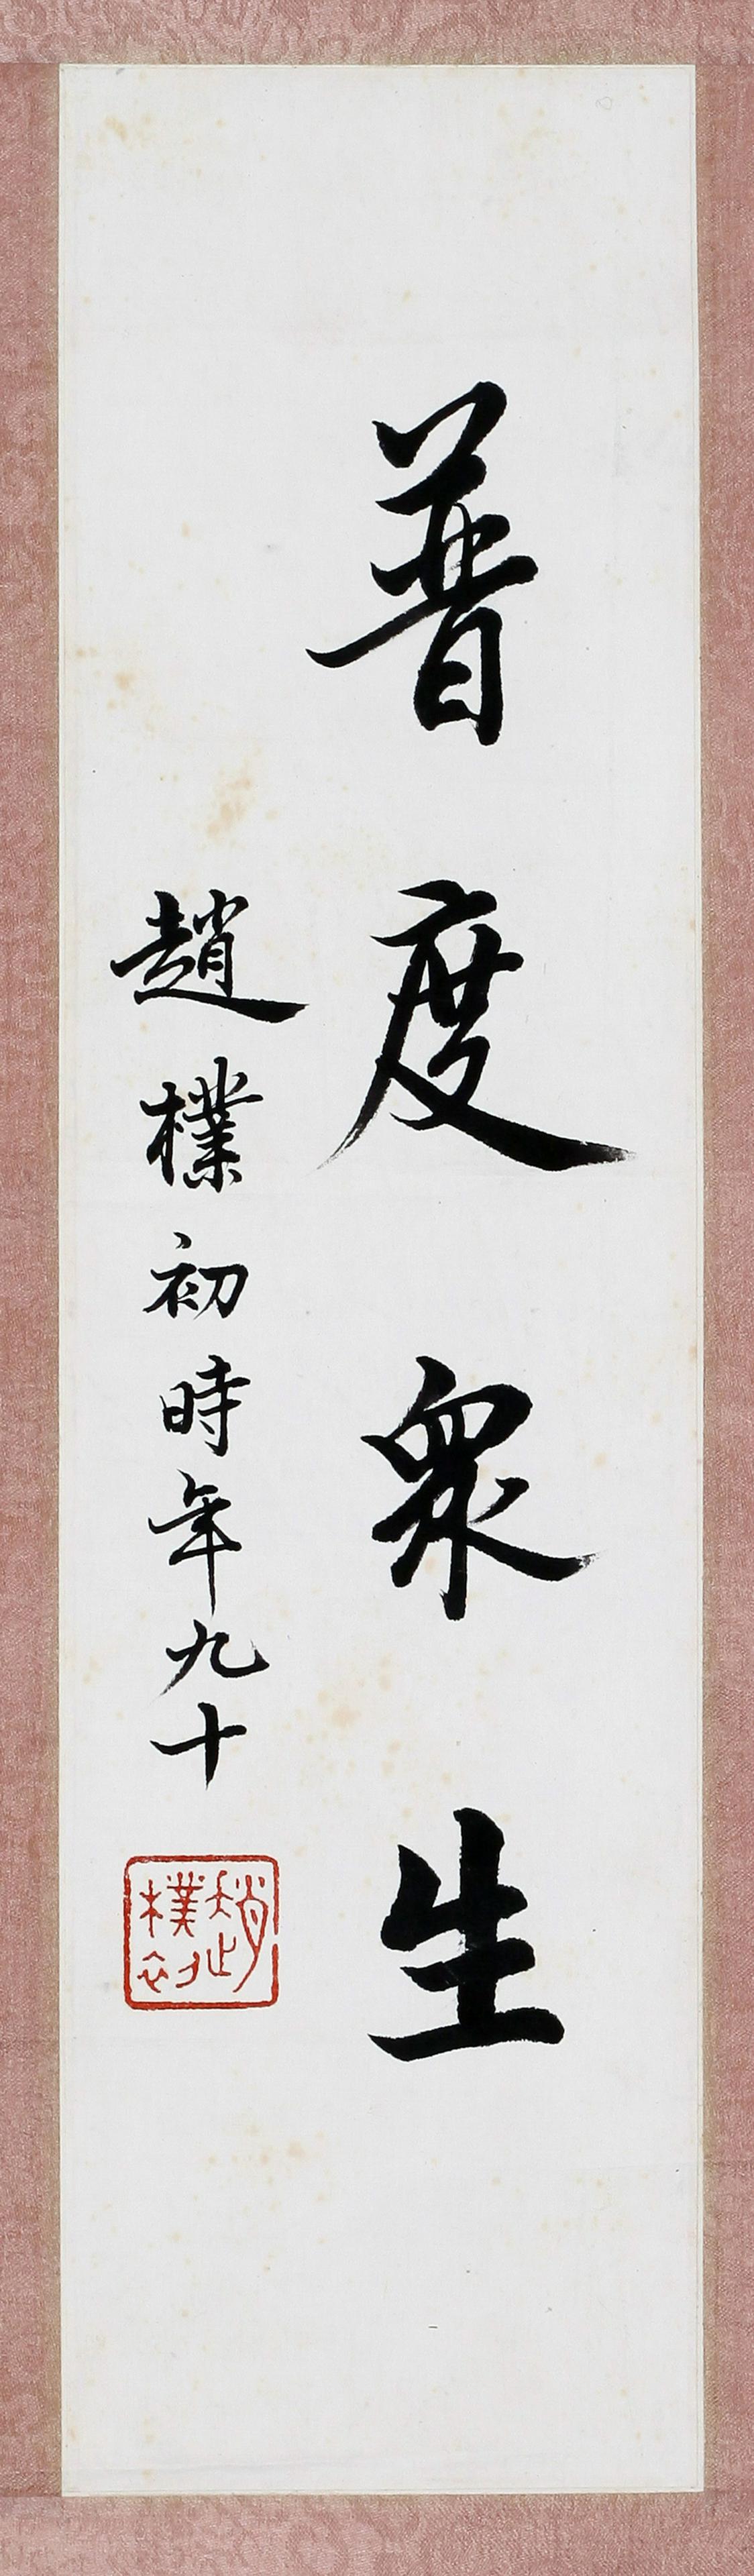 普度眾生
趙樸初時年九十
趙樸初